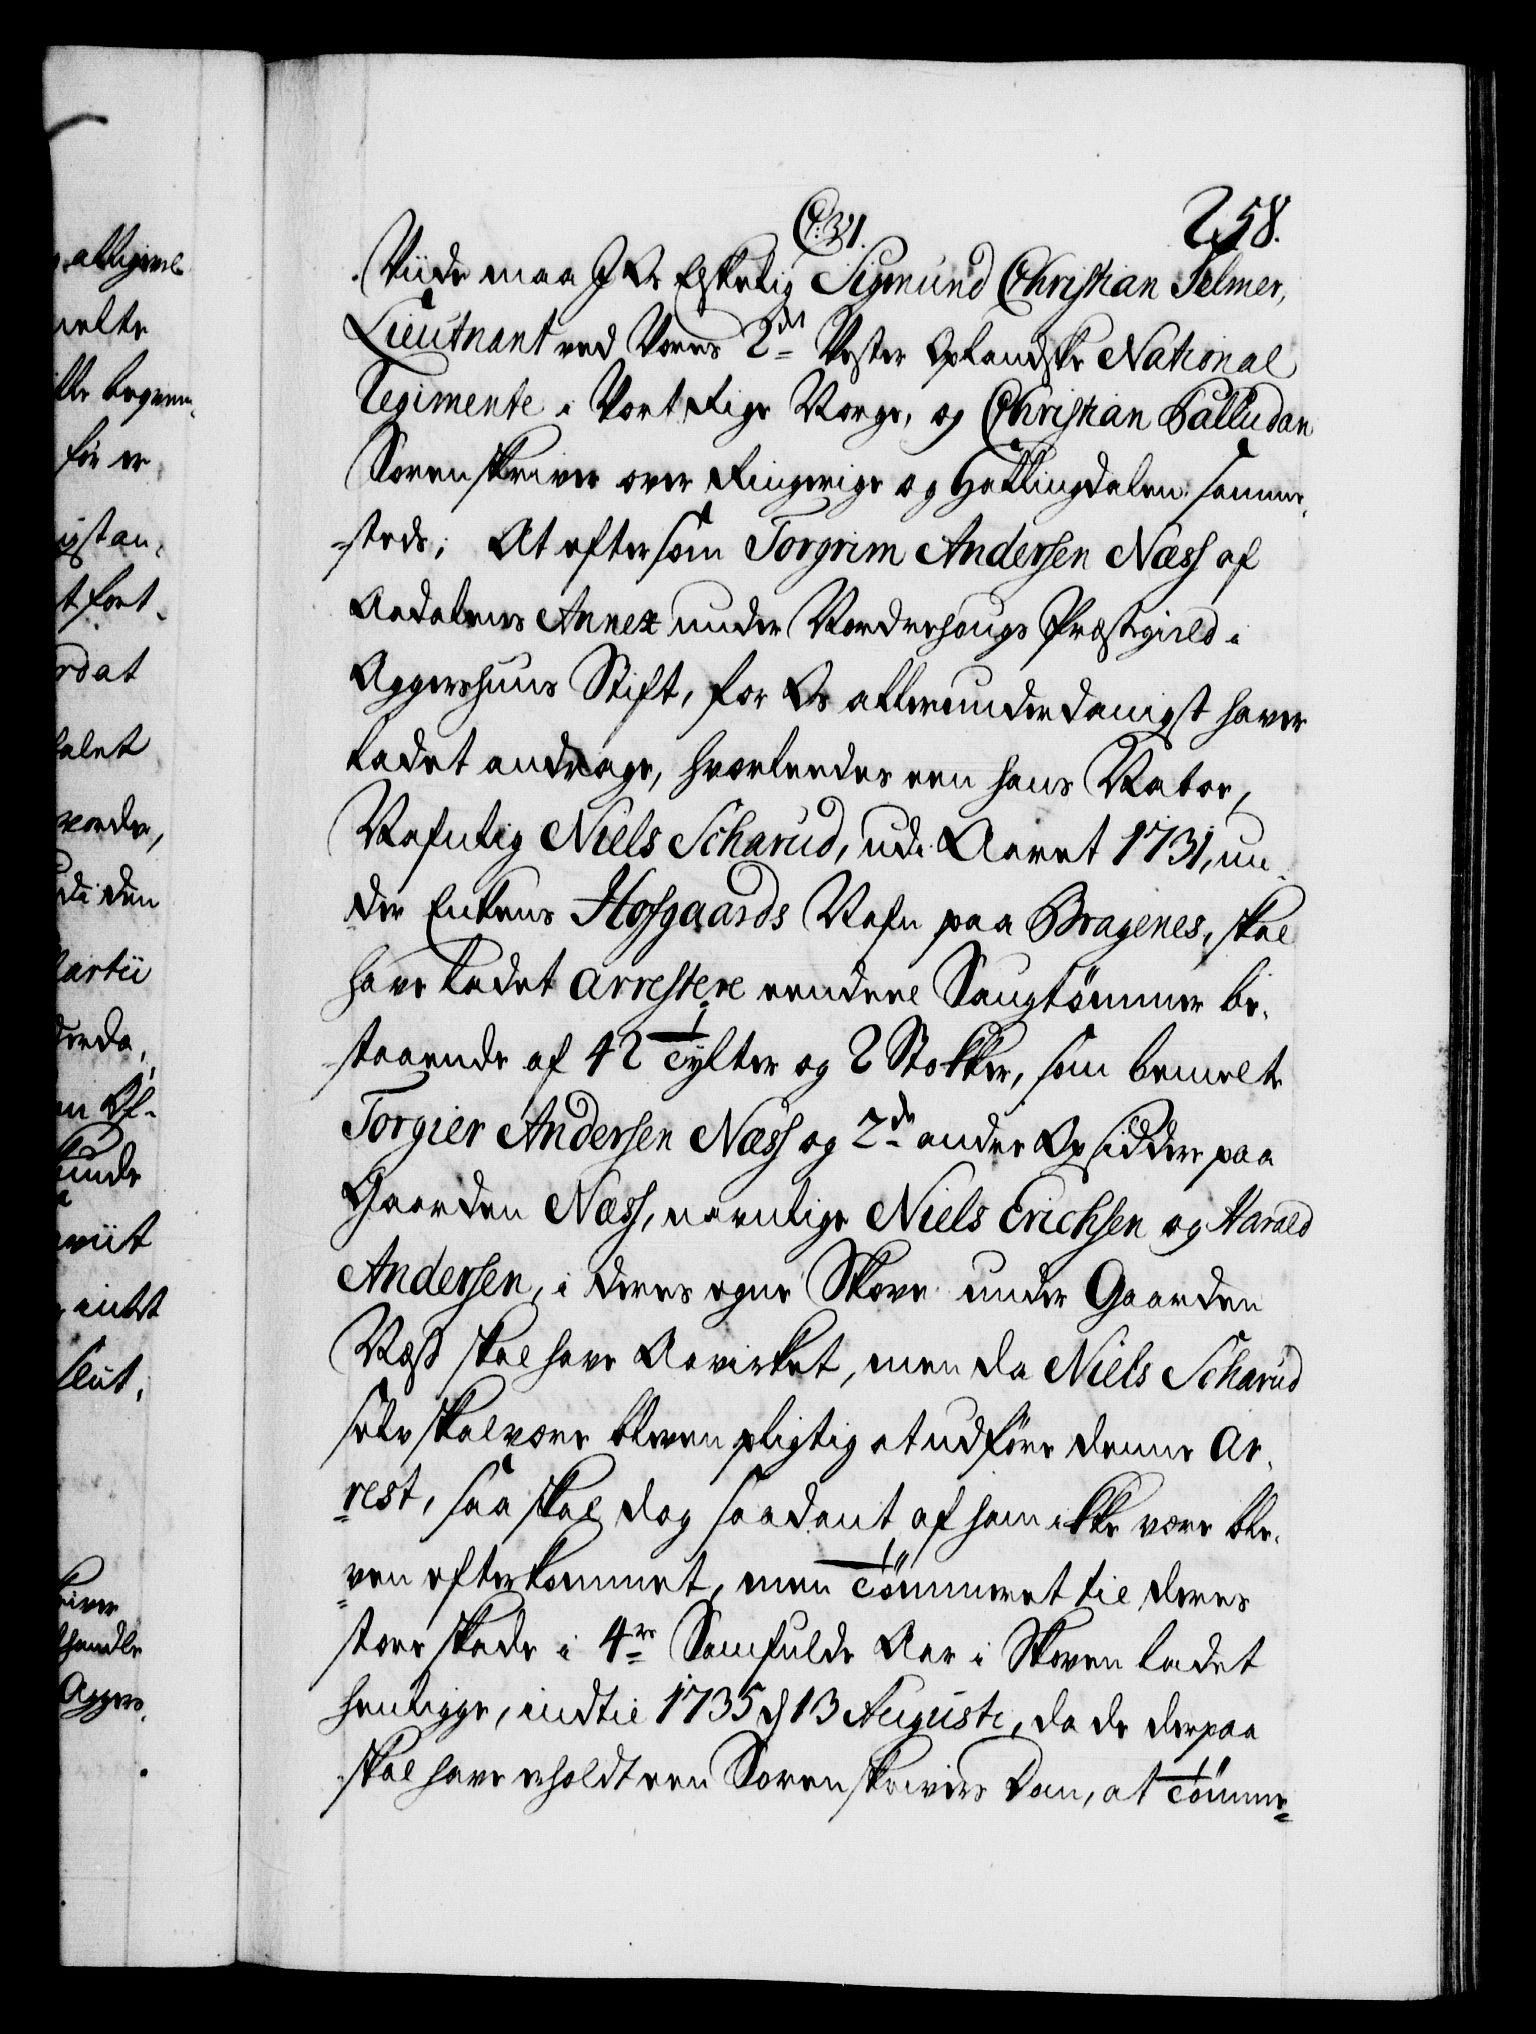 258.
C:31.
Viide maa I Os Elskelig Sigmund Christian Selmer,
Lieutnant ved Vores 2det Vester Oplandske National
Regimente i Vort Rige Norge, og Christian Palludan
Sorenskriver over Ringerige og Hallingdalen samme-
-steds; At eftersom Torgrim Andersen Næss af
Aadalens Annex under Norderhougs Præstegield i
Aggershuus Stift, for Os allerunderdanigst haver
ladet andrage, hvorledes een hans Naboe,
Nafnlig Niels Scharud, udi Aaret 1731, un-
der Enkens Hofgaards Nafn paa Bragenes, skal
have ladet arrestere eendeel Saugtömmer be-
-staaende af 42 Tylter og 2 Stokker, som bemelte
Torgier Andersen Næss og 2de andre Opsiddere paa
Gaarden Næss, navnlige Niels Erichsen og Harald
Andersen, i deres egne Skove under Gaarden
Næss skal have Aavirket, men da Niels Scharud
selv skal være bleven pligtig at udföre denne Ar-
rest, saa skal dog saadant af ham ikke være ble-
ven efterkommet, men Tömmeret til deres
store skade i 4re Samfulde Aar i Skoven ladet
henligge, indtil 1735 d 13 Augusti, da de derpaa
skal have erholdt een Sorenskrivers Dom, at Tömme-
allige
melte
for er
t fort-
rdat
talet
vorde,
udi den
Martii
intet
slut,
river
handle
Aggers-